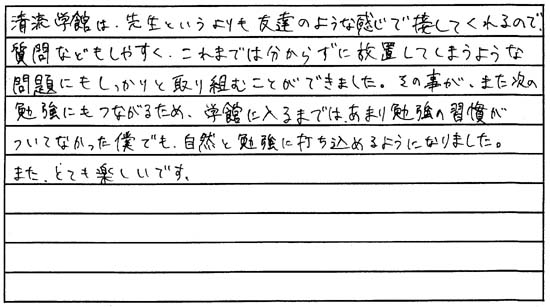 清流学館は、先生というよりも友達のような感じで接してくれるので、
質問などもしやすく、これまでは分からずに放置してしまうような
問題にもしっかりと取り組むことができました。その事が、また次の
勉強にもつながるため、学館に入るまでは、あまり勉強の習慣が
ついてなかった僕でも、自然と勉強に打ち込めるようになりました。
また、とても楽しいです。